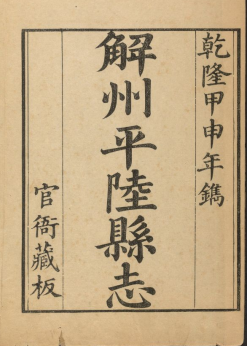 乾隆甲申年鐫
解州平陸縣志
官衙藏板